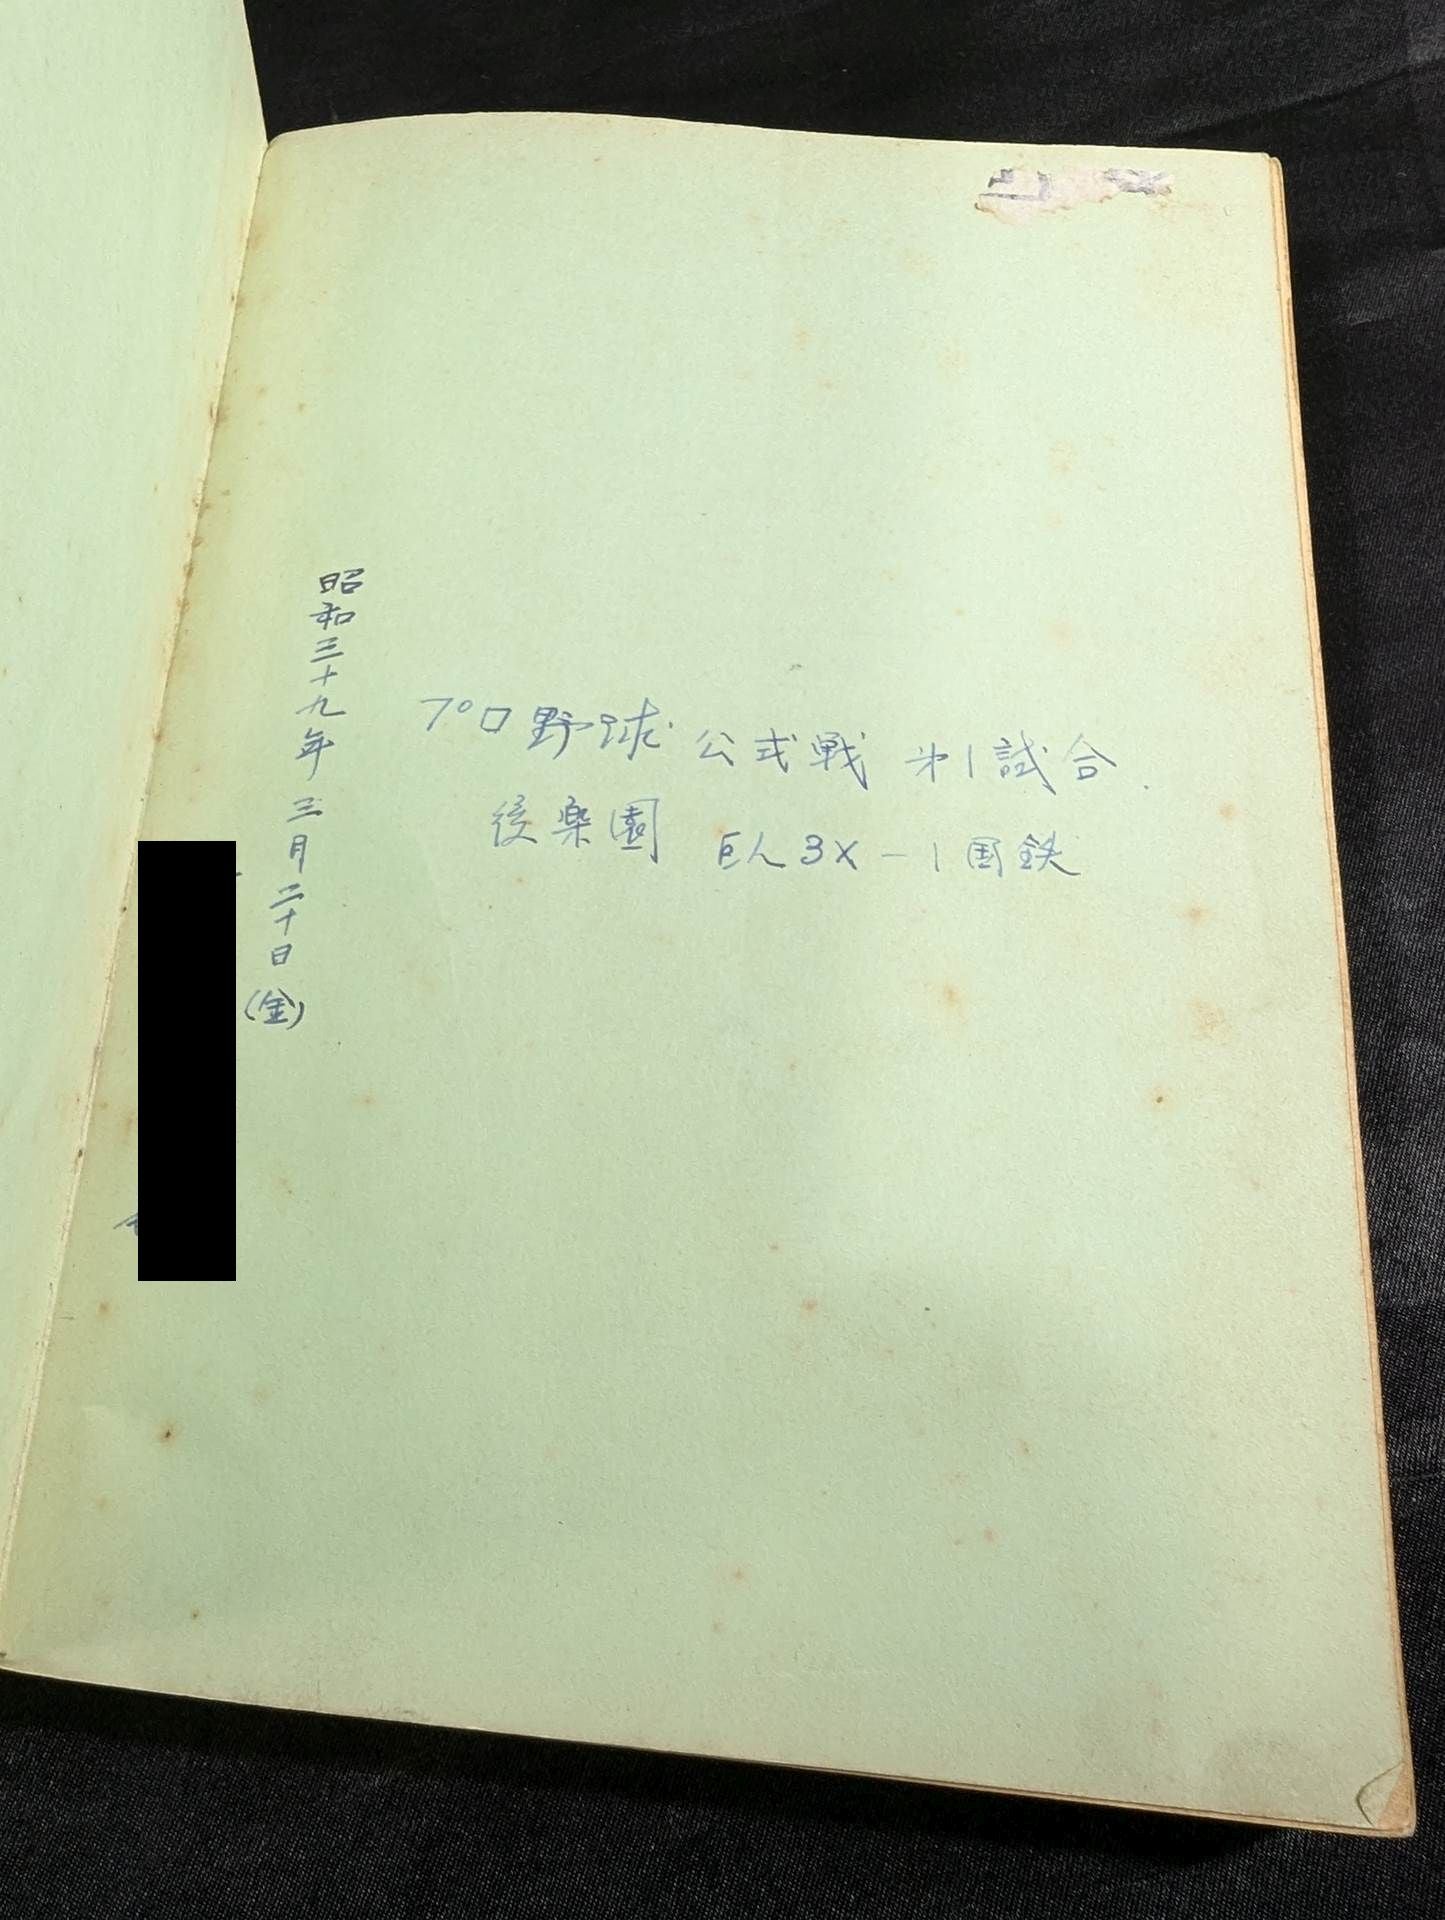 昭和三十九年 三月二十日(金)
プロ野球 公式戦 㐧1試合
後楽園 巨人3X-1国鉄